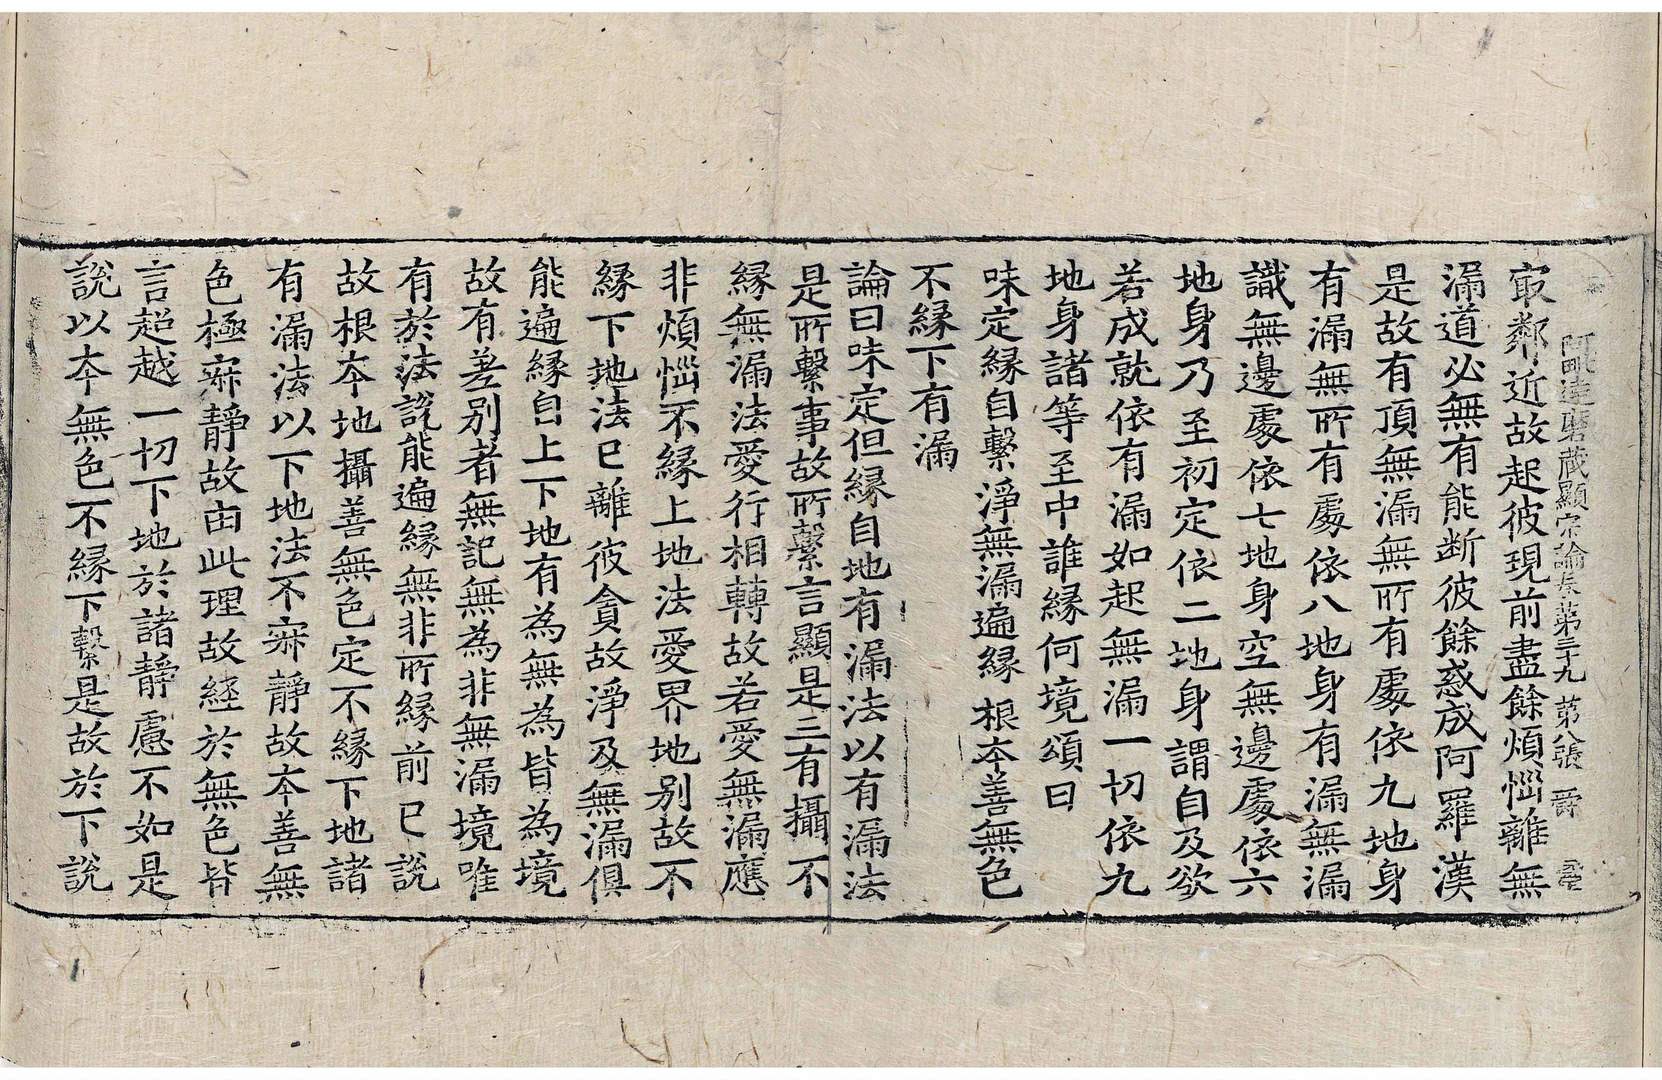 阿毗達磨藏顯宗論卷第三十九 第八張 爵
㝡鄰近故起彼現前盡餘煩惱離無
漏道必無有能断彼餘惑成阿羅漢
是故有頂無漏無所有處依九地身
有漏無所有處依八地身有漏無漏
識無邊處依七地身空無邊處依六
地身乃至初定依二地身謂自及欲
若成就依有漏如起無漏一切依九
地身諸等至中誰緣何境頌曰
味定緣自繫 淨無漏遍緣 根本善無色
不緣下有漏
論曰味定但緣自地有漏法以有漏法
是所繫事故所繫言顯是三有攝不
緣無漏法愛行相轉故若愛無漏應
非煩惱不緣上地法愛界地別故不
緣下地法已離彼貪故淨及無漏俱
能遍緣自上下地有為無為皆為境
故有差別者無記無為非無漏境唯
有於法說能遍緣無非所緣前已說
故根本地攝善無色定不緣下地諸
有漏法以下地法不寂靜故本善無
色極寂靜故由此理故經於無色皆
言超越一切下地於諸靜慮不如是
說以本無色不緣下繫是故於下說